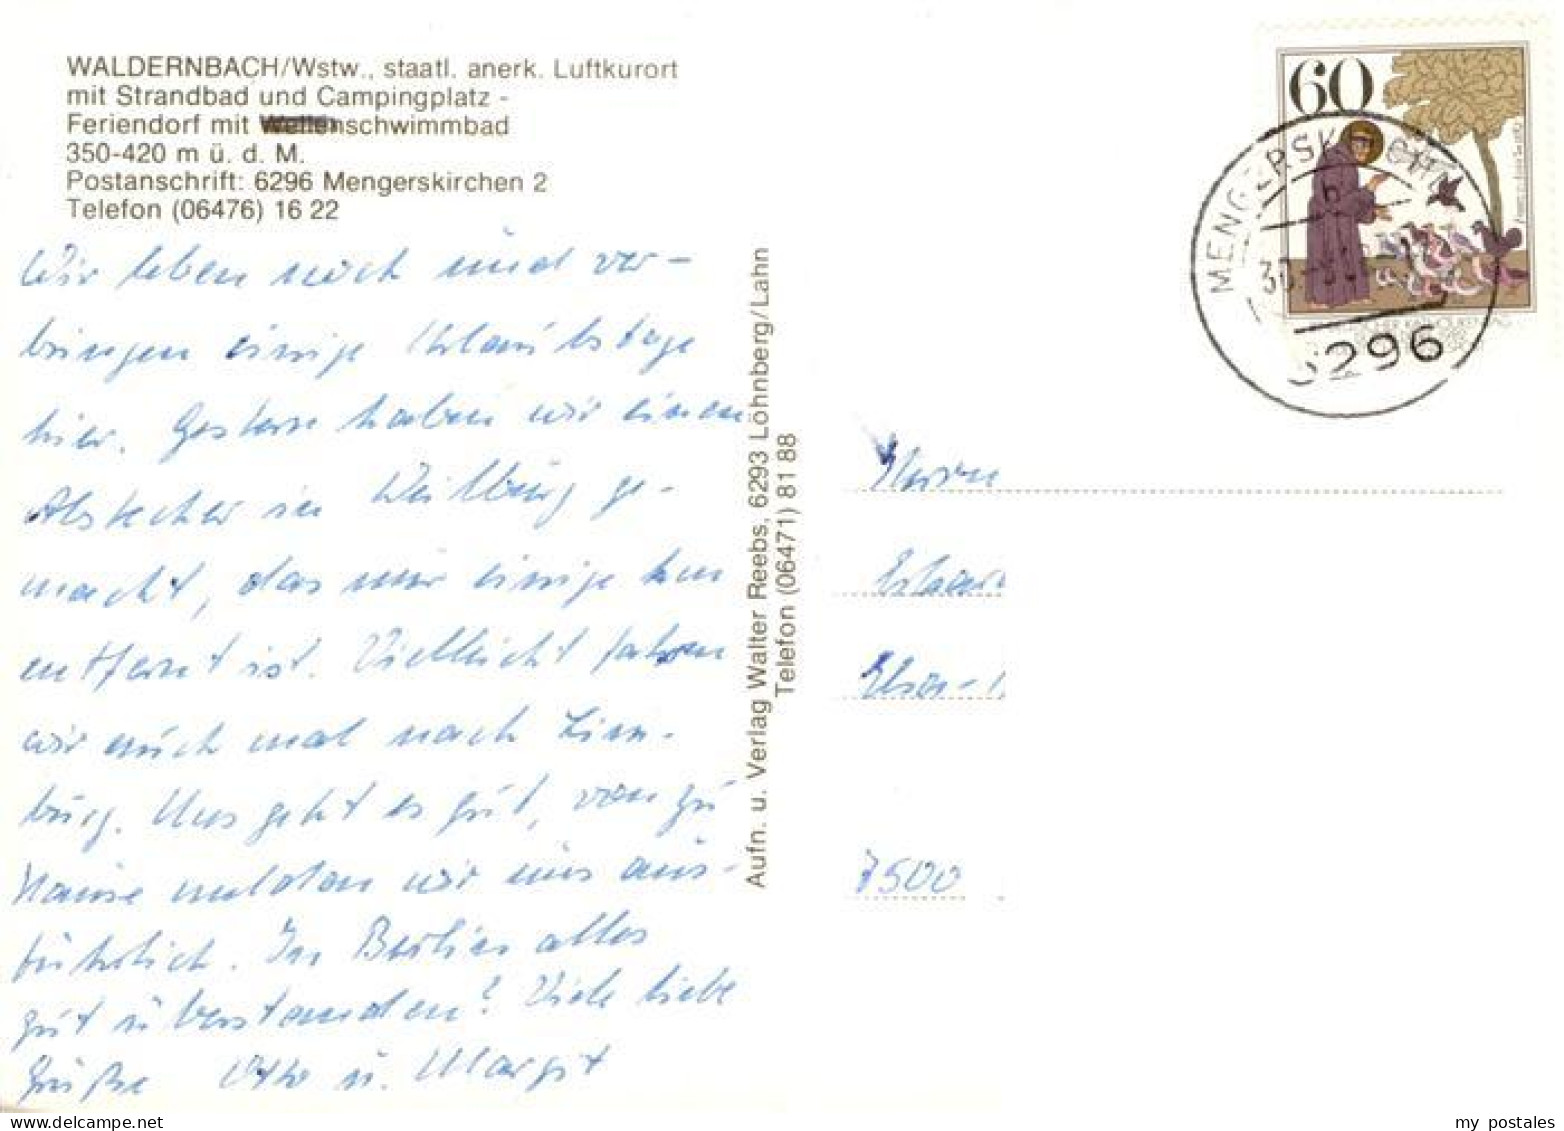 WALDERNBACH/Wstw., staatl. anerk. Luftkurort
mit Strandbad und Campingplatz -
Feriendorf mit Wellenschwimmbad
350-420 m ü. d. M.
Postanschrift: 6296 Mengerskirchen 2
Telefon (06476) 16 22
Wir leben noch und ver-
bringen einige Urlaubstage
hier. Gestern haben wir einen
Abstecher in Weilburg ge-
macht, das nur einige km
entfernt ist. Vielleicht fahren
wir auch mal nach Lim-
burg. Uns geht es gut, von zu
Hause melden wir uns aus-
führlich. In Berlin alles
gut überstanden? Viele liebe
Grüße Otto u. Margit
Aufn. u. Verlag Walter Reebs, 6293 Löhnberg/Lahn
Telefon (06471) 81 88
60
MENGERSKIRCHEN
6296
7500
my postales